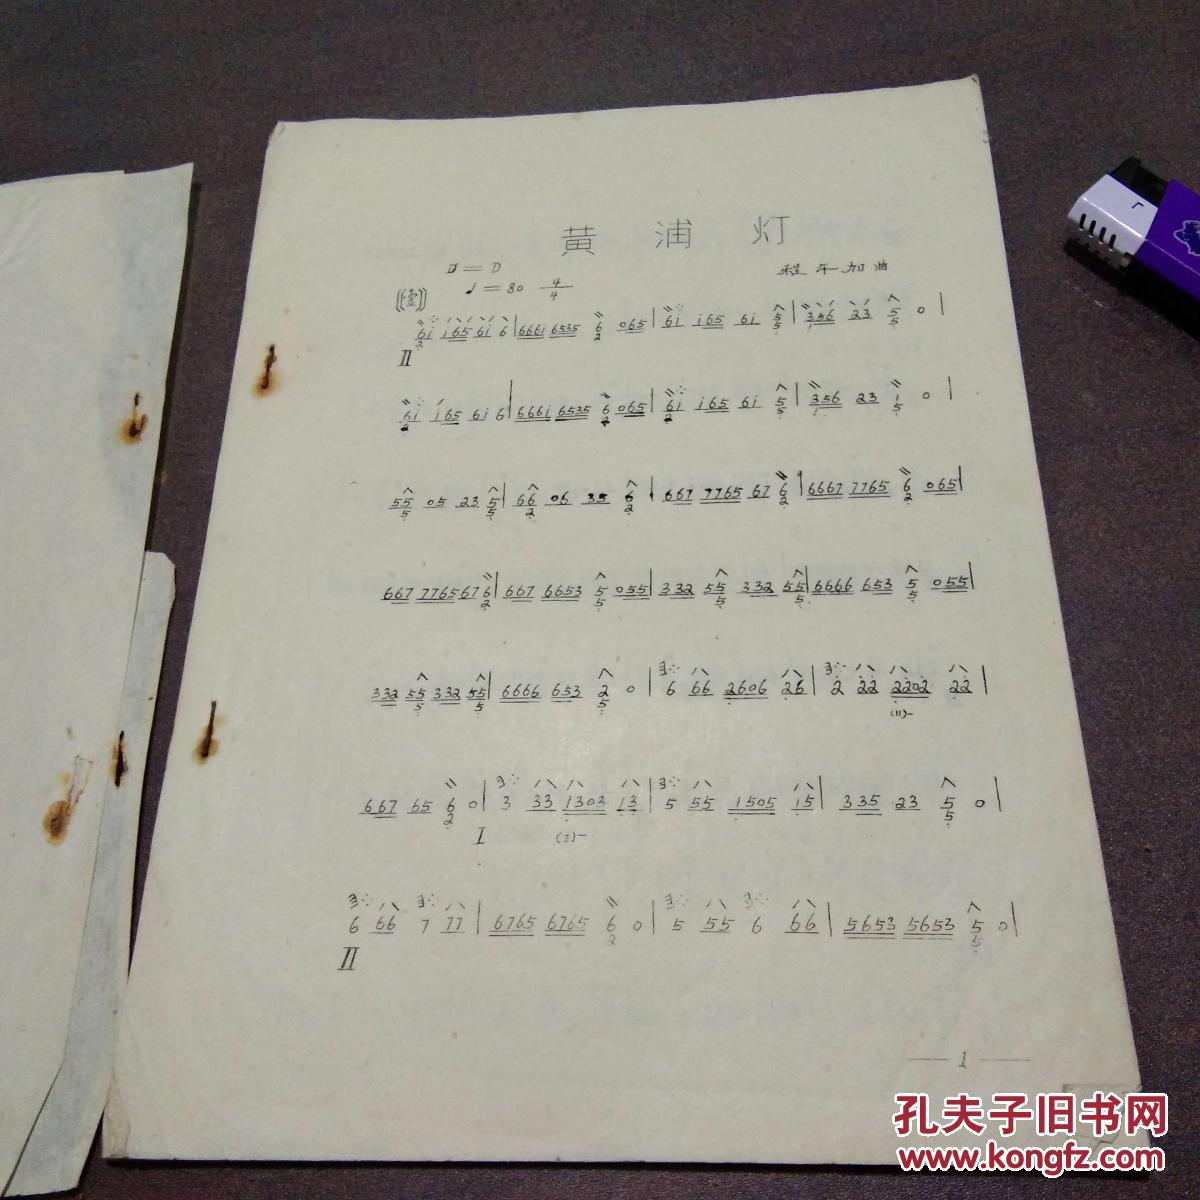 黄 浦 灯
D
程午加曲
♩=80 4/4
II
66 6 i 6535 6 2 065 | 6i i65 6i 5 5 | 356 23 5 5 0 |
6i i65 6i 6 | 666i 6535 6 2 065 | 6i i65 6i 5 5 | 356 23 1 5 0 |
55 5 05 23 5 5 | 66 2 06 35 6 2 | 667 7765 67 6 2 | 6667 7765 6 2 065 |
667 7765 67 6 2 | 667 6653 5 5 055 | 332 55 5 332 55 5 | 6666 653 5 5 055 |
332 55 5 332 55 5 | 6666 653 2 5 0 | 6 66 2606 26 | 2 22 2202 22 |
667 65 6 2 0 | 3 33 1303 13 | 5 55 1505 15 | 335 23 5 5 0 |
I
6 66 7 77 | 6765 6765 6 2 0 | 5 55 6 66 | 5653 5653 5 5 0 |
II
— 1 —
孔夫子旧书网
www.kongfz.com